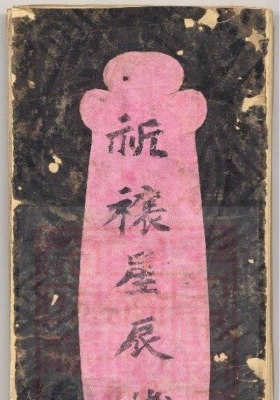 祈禳星辰